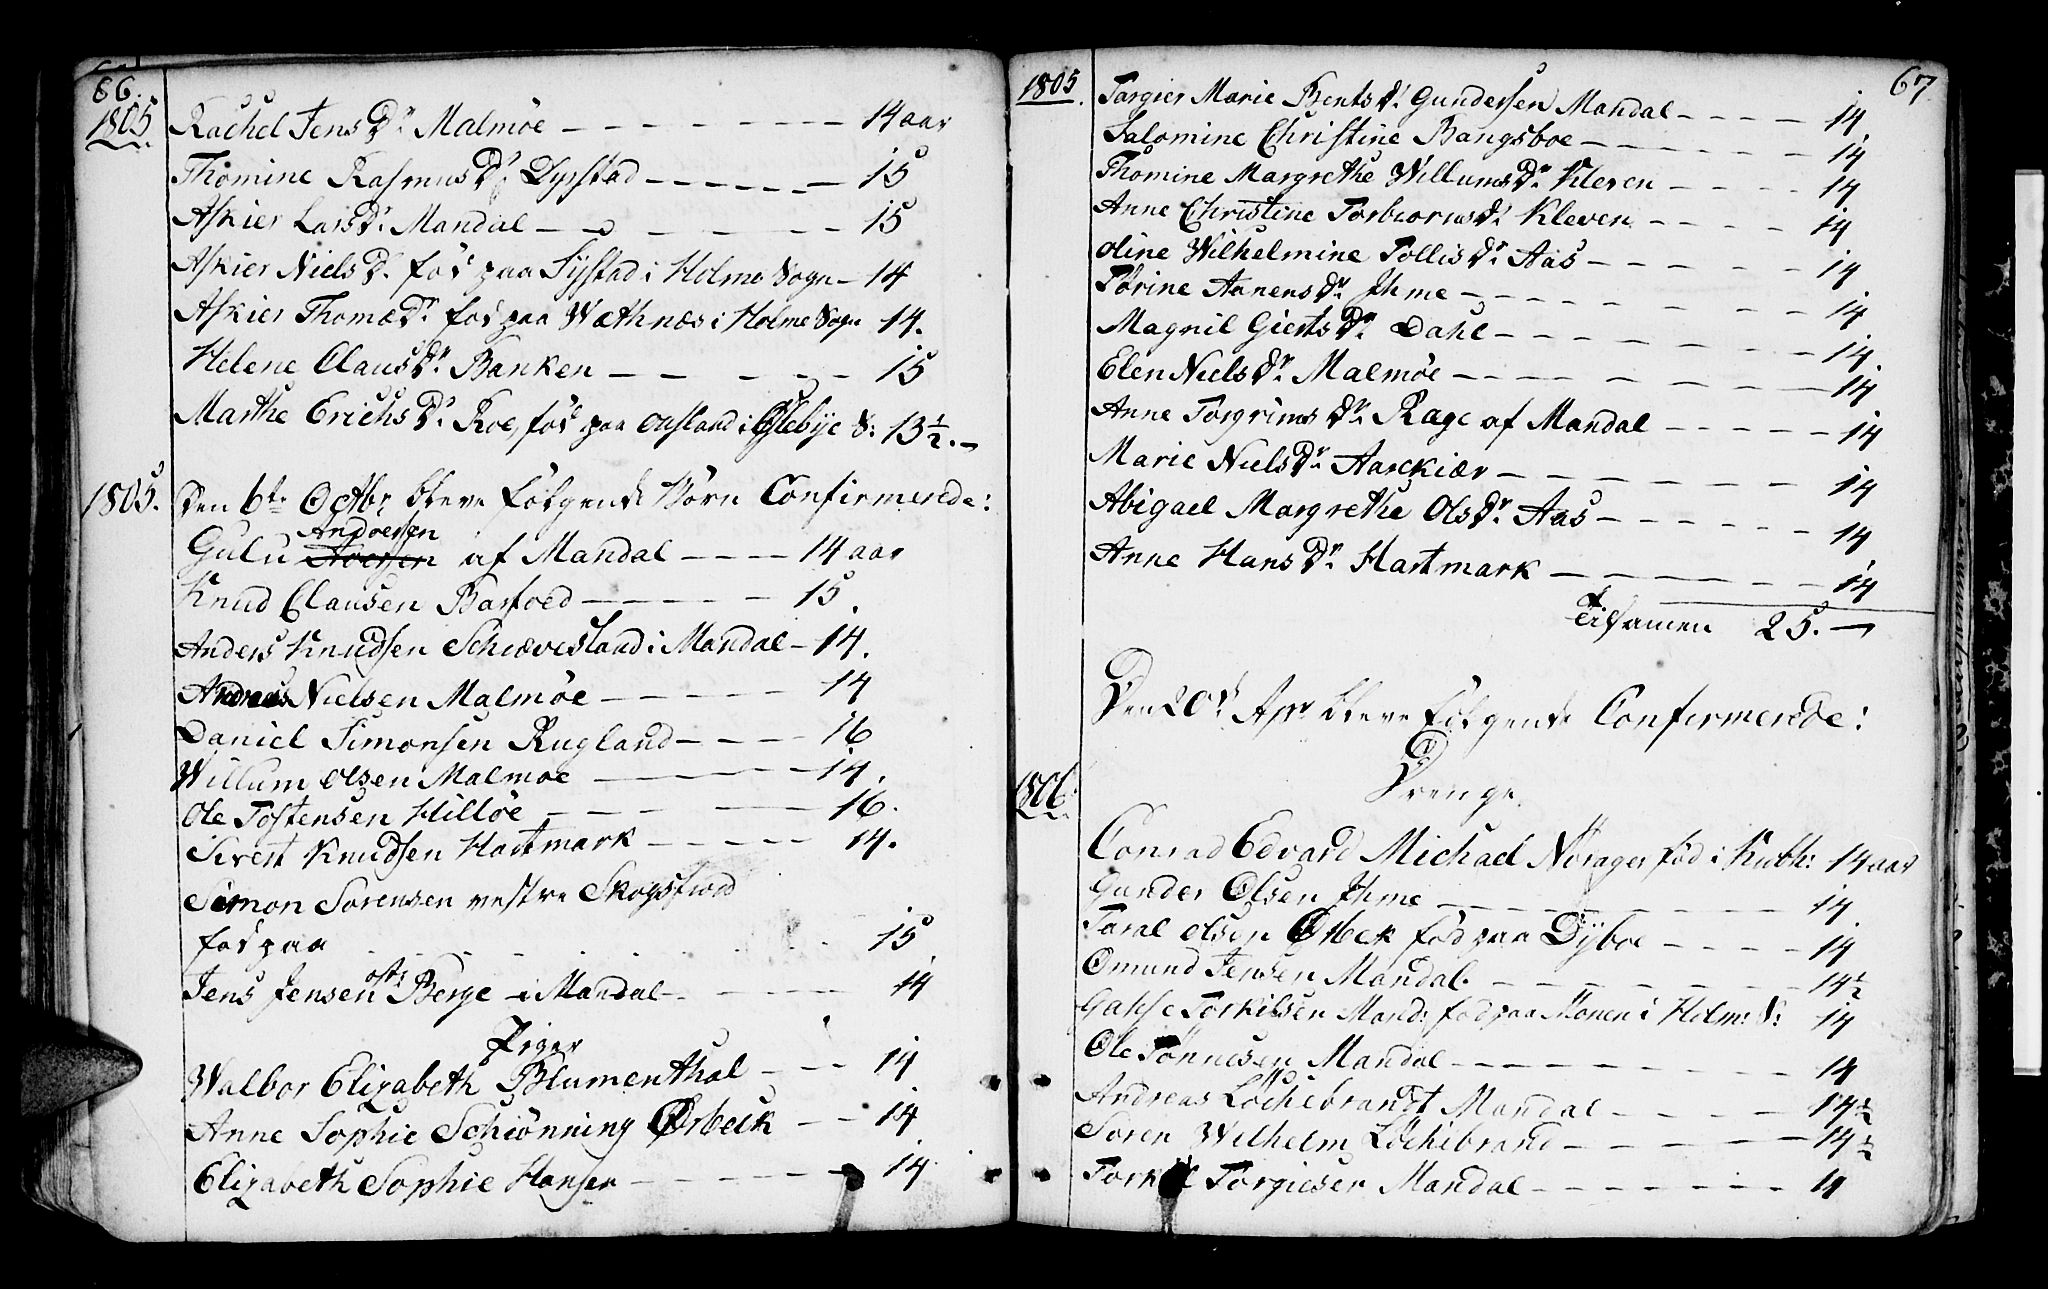 66.
1805 Rachel Jens Dr. Malmöe 14 aar
Thomine Rasmus Dr. Dyrstad 15
Askier Lars Dr. Mandal 15
Askier Niels Dr. fød paa Systad i Holme Sogn 14
Askier Thomæ Dr. fød paa Wæthnæs i Holme Sogn 14.
Helene Claus Dr. Banken 15
Marthe Erichs Dr. Roe, fød paa Aasland i Öslebye S: 13 1/2.
1805. Den 6te Octbr bleve følgende Börn Confirmerede:
Gulu Andoersen af Mandal 14 aar
Knud Clausen Barfoed 15.
Anders Knudsen Schiævesland i Mandal 14.
Andreas Nielsen Malmöe 14
Daniel Simonsen Rugland 16
Willum Olsen Malmöe 14.
Ole Tostensen Hillöe 16.
Sivert Knudsen Hartmark 14.
Simon Sörensen vestre Skogsfiord
fød paa 15
Jens Jensen ofte Berge i Mandal 14
Piger
Walbor Elizabeth Blumenthal 14
Anne Sophie Schiönning Örbeck 14
Elizabeth Sophie Hansen 14.
67
1805. Torgier Marie Bents Dr. Gundersen Mandal 14
Salomine Christine Bangsboe 14
Thomine Margrethe Willums Dr. Kleven 14
Anne Christine Torbiörns Dr. Kleven 14
Oline Wilhelmine Tollis Dr. Aas 14
Törine Aanens Dr. Ihme 14
Magnil Gierts Dr. Dahl 14.
Elen Niels Dr. Malmöe 14
Anne Torgrims Dr. Rage af Mandal 14
Marie Niels Dr. Aarekiær 14
Abigael Margrethe Ols Dr. Aas 14
Anne Hans Dr. Hartmark 14
Tilsamen 25.
Den 20de Apr bleve følgende Confirmerede:
1806. Drenge
Conrad Edvard Michael Norager fød i Kiøbh: 14 aar
Gunder Olsen Ihme 14
Taral Olsen Örbek fød paa Dyboe 14
Omund Jensen Mandal. 14 1/2
Torkilsen Mand: fød paa Monen i Holm: S: 14
Ole Tönnesen Mandal 14
Andreas Löchebrandt Mandal 14 1/2
Sören Wilhelm Löchebrand 14 1/2
Torkel Torgiesen Mandal 14